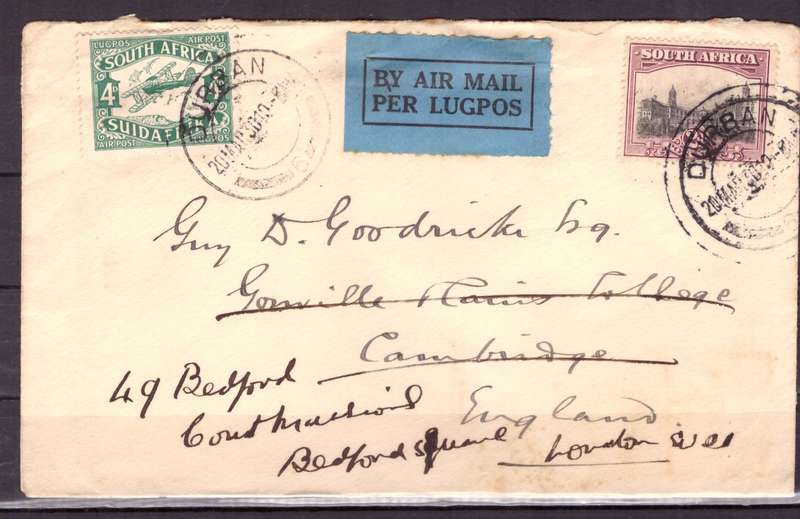 LUGPOS AIR POST
SOUTH AFRICA
4D
SUIDAFRIKA
AIR POST LUGPOS
DURBAN
20 MAR 30
BY AIR MAIL
PER LUGPOS
SOUTH AFRICA
DURBAN
20 MAR 30
Guy D. Goodricke Esq.
Gonville & Caius College
Cambridge
England
49 Bedford
Court Mansions
Bedford Square London